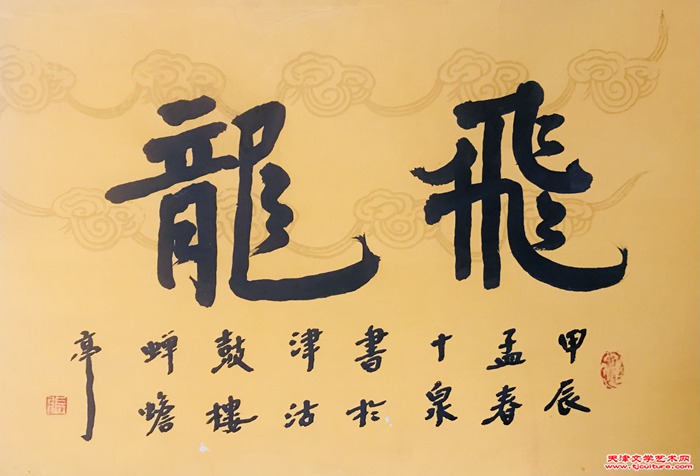 飛龍
甲辰
孟春
十泉
書於
津沽
鼓樓
蟬蟾
亭
天津文学艺术网
www.tjculture.com